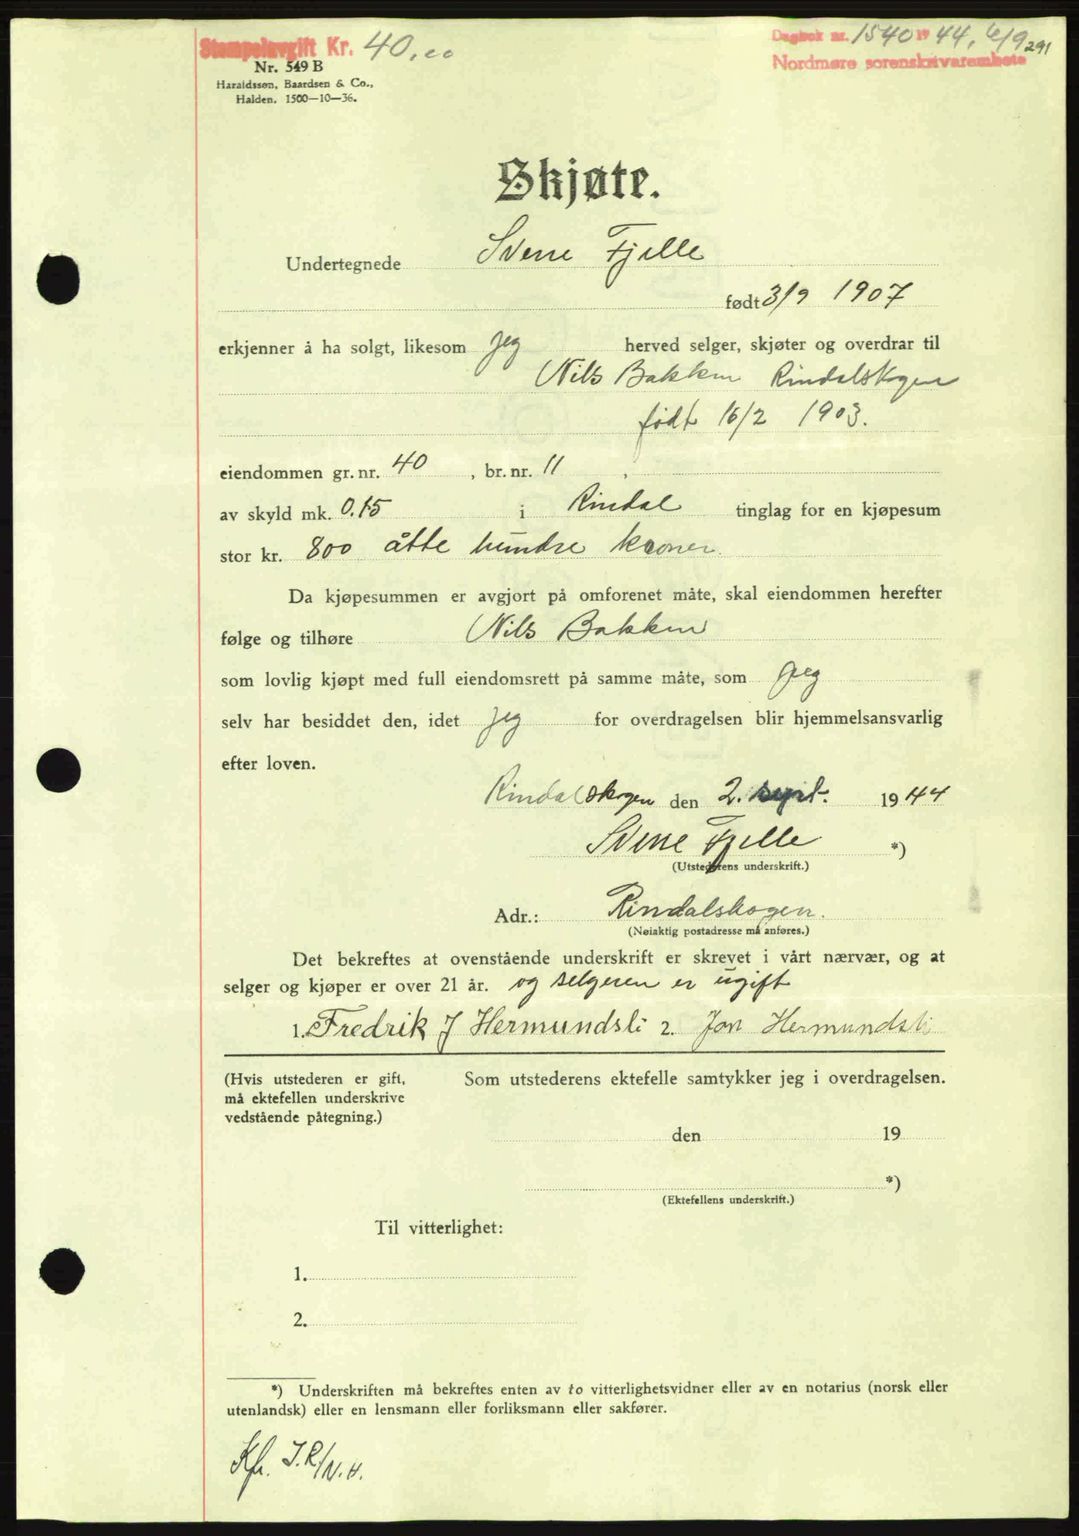 Stempelavgift Kr. 40,00
Dagbok nr. 1540 19 44, 6/9
291
Nordmøre sorenskriverembete
Nr. 549 B
Haraldssøn, Baardsen & Co.,
Halden. 1500—10—36.
Skjøte.
Undertegnede Sverre Fjelle
født 3/9 1907
erkjenner å ha solgt, likesom jeg herved selger, skjøter og overdrar til
Nils Bakken Rindalskogen
født 16/2 1903.
eiendommen gr. nr. 40, br. nr. 11,
av skyld mk. 0.15 i Rindal tinglag for en kjøpesum
stor kr. 800 åtte hundre kroner.
Da kjøpesummen er avgjort på omforenet måte, skal eiendommen herefter
følge og tilhøre Nils Bakken
som lovlig kjøpt med full eiendomsrett på samme måte, som jeg
selv har besiddet den, idet jeg for overdragelsen blir hjemmelsansvarlig
efter loven.
Rindalskogen den 2. sept. 1944
Sverre Fjelle *)
(Utstederens underskrift.)
Adr.: Rindalskogen.
(Nøiaktig postadresse må anføres.)
Det bekreftes at ovenstående underskrift er skrevet i vårt nærvær, og at
selger og kjøper er over 21 år. og selgeren er ugift
1. Fredrik J Hermundsli 2. Jon Hermundsli
(Hvis utstederen er gift,
må ektefellen underskrive
vedstående påtegning.)
Som utstederens ektefelle samtykker jeg i overdragelsen.
den 19
*)
(Ektefellens underskrift.)
Til vitterlighet:
1.
2.
*) Underskriften må bekreftes enten av to vitterlighetsvidner eller av en notarius (norsk eller
utenlandsk) eller en lensmann eller forliksmann eller sakfører.
Kfr. J.R/N.H.